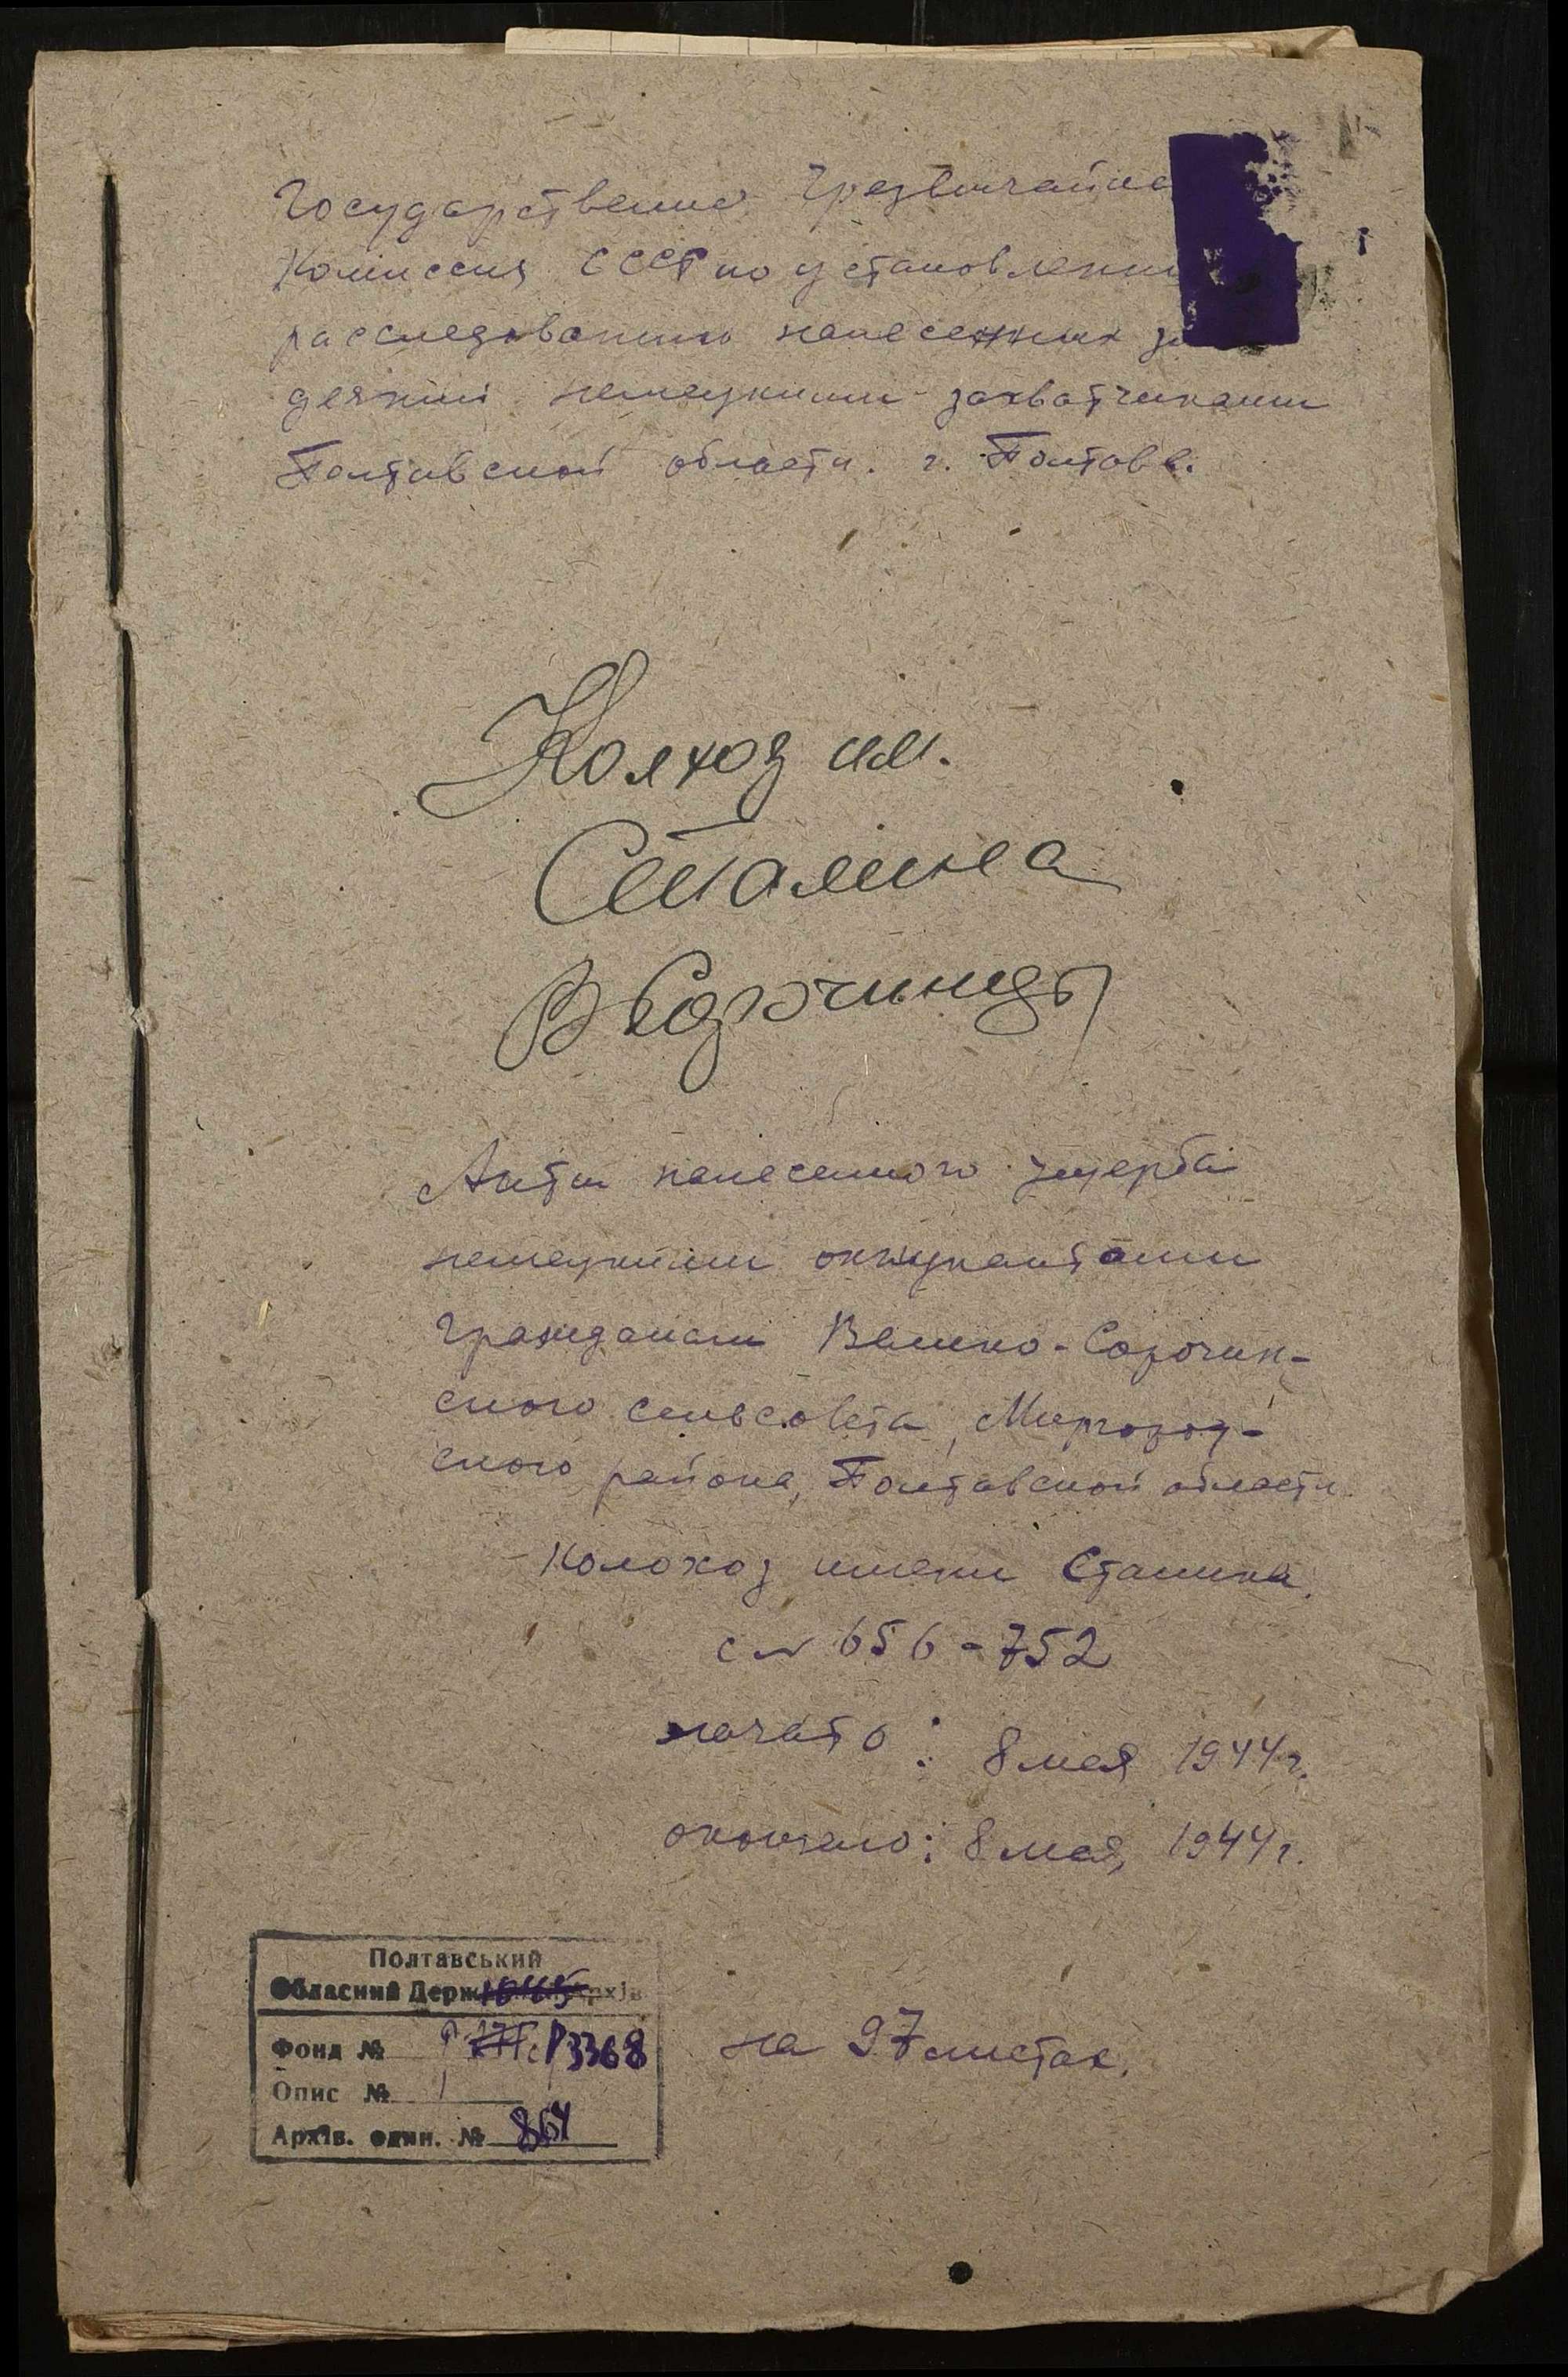 Государственно Чрезвычайно
Комиссия СССР по установлени
расследованию нанесенных з
деяний немецкими захватчиками
Полтавской области. г. Полтава.
Колхоз им.
Сталина
В Сорочинцы
Акты нанесенного ущерба
немецкими оккупантами
гражданам Велико-Сорочин-
ского сельсовета, Миргород-
ского района, Полтавской области
Колохоз имени Сталина.
с № 656-752
начато: 8 мая 1944 г.
окончено: 8 мая 1944 г.
Полтавський
Обласний Держ Архів
Фонд № Р3368
Опис № 1
Архів. один. № 864
на 97 листах.